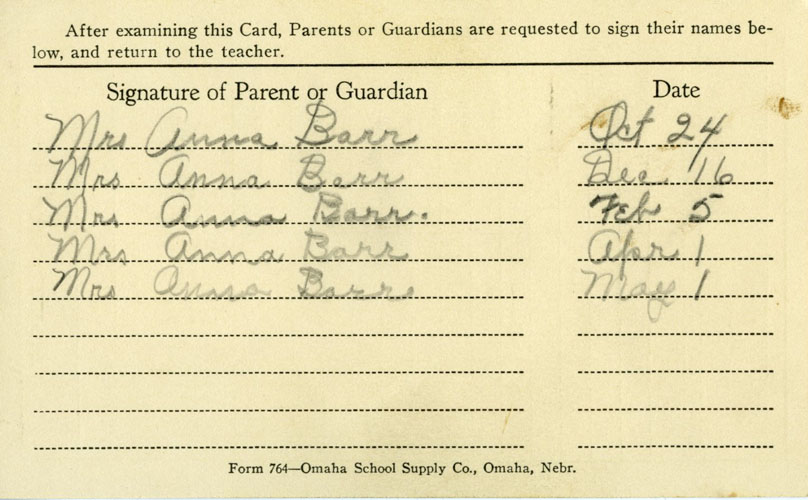 After examining this Card, Parents or Guardians are requested to sign their names be-
low, and return to the teacher.
Signature of Parent or Guardian Date
Mrs Anna Barr Oct 24
Mrs Anna Barr Dec 16
Mrs Anna Barr. Feb 5
Mrs Anna Barr Apr 1
Mrs Anna Barr May 1
Form 764—Omaha School Supply Co., Omaha, Nebr.